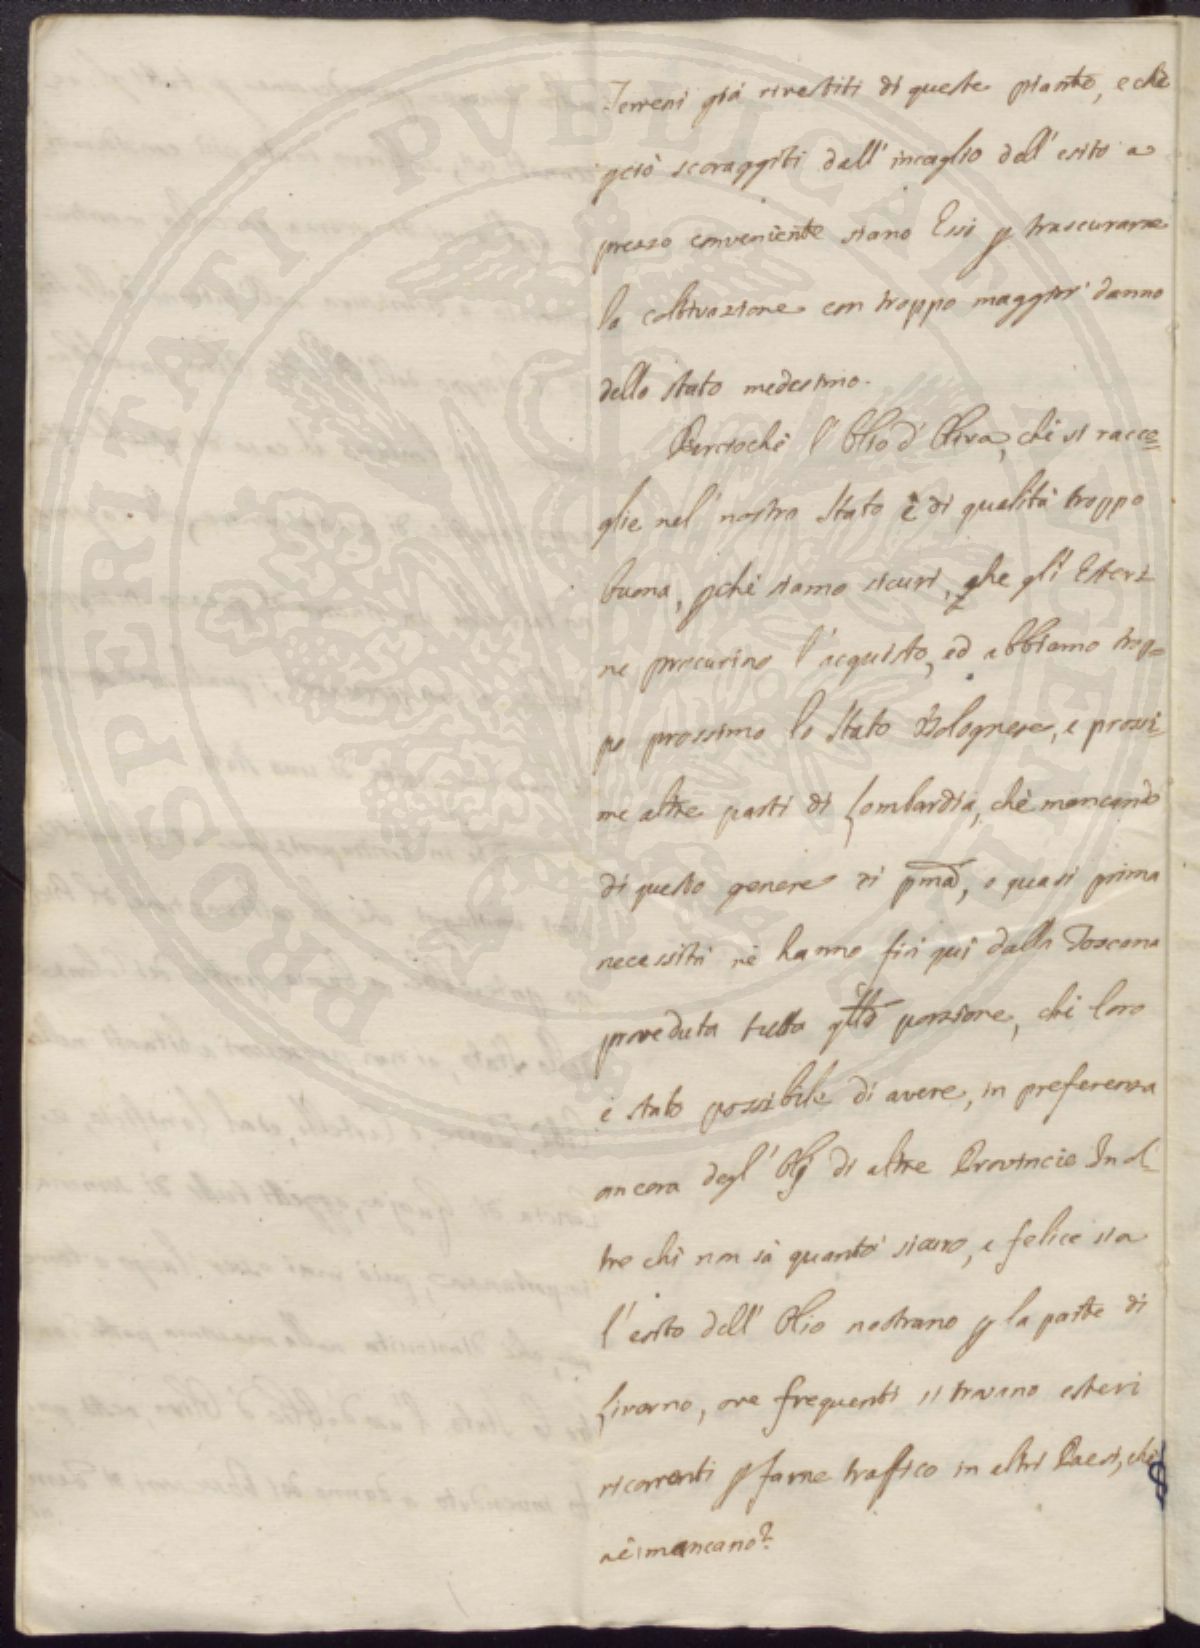 Terreni già rivestiti di queste piante, e che
pciò scoraggiti dall' incaglio dell' esito a
prezzo conveniente siano Essi p trascurarne
la coltivazione con troppo maggior danno
dello stato medesimo.
Percioche l' Olio d' Oliva, che si racco=
glie nel' nostro Stato è di qualità troppo
buona, pche siamo sicuri, che gli Esteri
ne procurino l' acquisto, ed abbiamo trop=
po prossimo lo Stato Bolognese, e prossi=
me altre parti di Lombardia, che mancando
di questo genere di pma, o quasi prima
necessità ne hanno fin qui dalla Toscana
proveduta tutta qlla porzione, che loro
è stato possibile di avere, in preferenza
ancora degl' Olj di altre Provincie Inol=
tre chi non sà quanto sicuro, e felice sia
l' esito dell' Olio nostrano p la parte di
Livorno, ove frequenti si trovano esteri
ricorrenti p farne traffico in altri Paesi, che
ne mancano?
PROSPERITATI PVBLICAE AVGENDAE